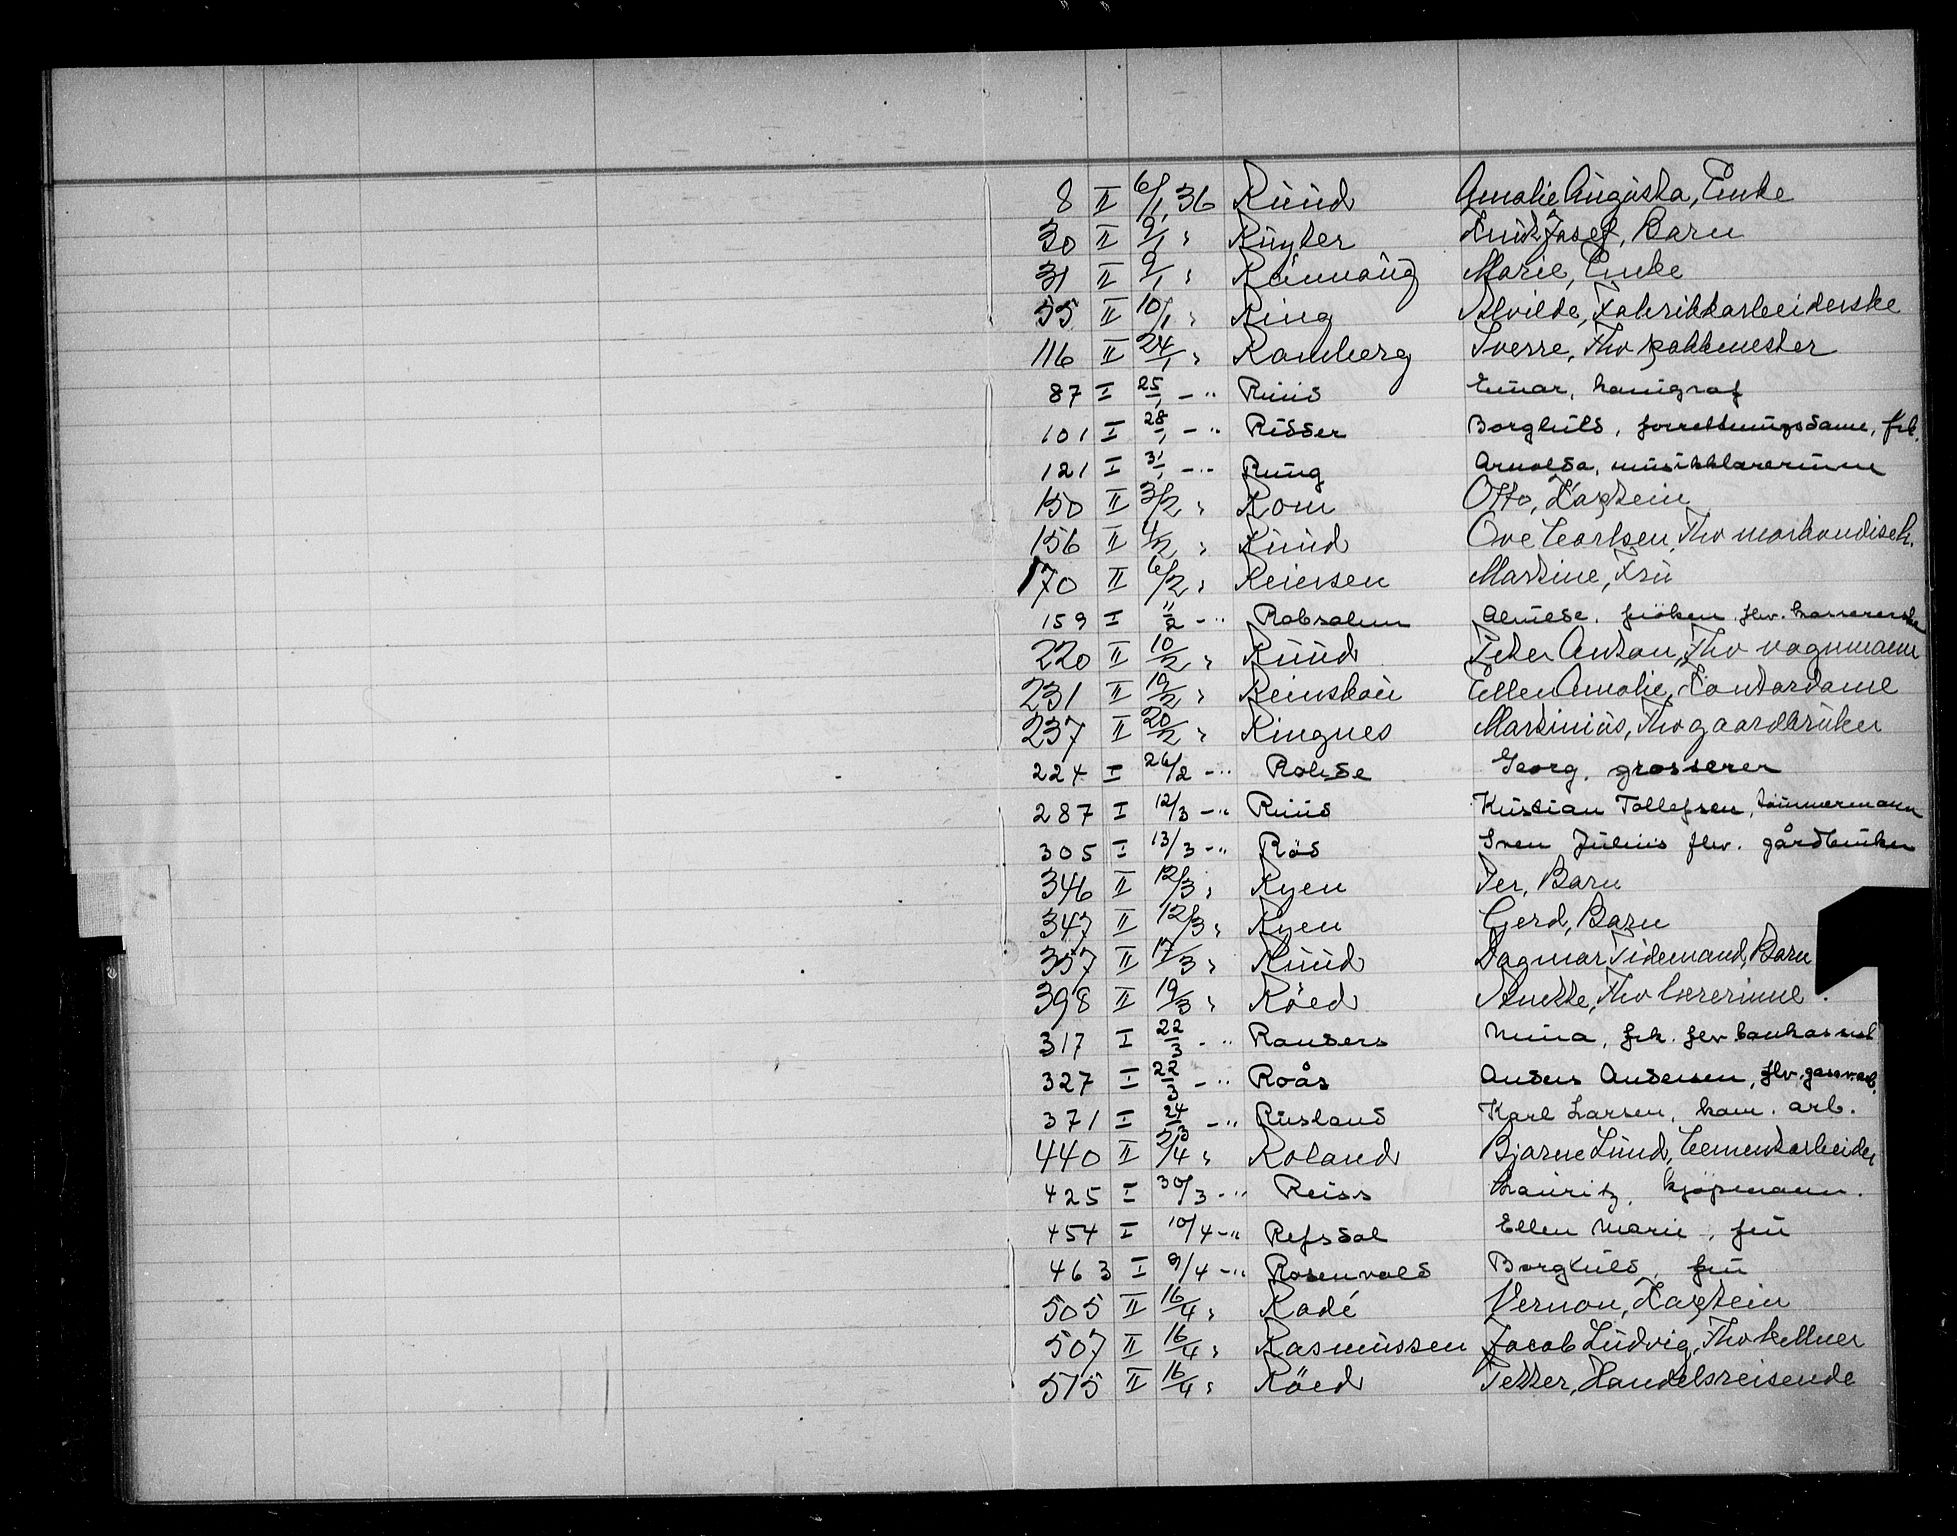 8 II 6/1 36 Ruud Amalie Augusta, Enke
30 II 9/1 " Ruyter Josef, Barn
31 II 9/1 " Marie, Enke
55 II 10/1 " Ring Alvilde, Fabrikkarbeiderske
116 II 24/1 " Ramberg Sverre, Fhv pakkmester
87 I 25/1 - " Ruud Einar,
101 I 28/1 - " Risser Borghild, forretningsdame, frk.
121 I 31/1 - " Ring Arnolda, musikklærerinne
150 II 3/2 " Rom Otto, Kaptein
156 II 4/2 " Ruud Ove Carlsen, Fhv markandisch.
170 II 6/2 " Reiersen Martine, Fru
159 I "/2 - " Robsahm Almede. frøken flv. kassererske
220 II 10/2 " Ruud Peter Anton, Fhv vognmann
231 II 19/2 " Reinskou Ellen Amalie, Kontordame
237 II 20/2 " Ringnes Martinius, Fhv gaardbruker
224 I 26/2 - " Rohde Georg. grosserer
287 I 12/3 - " Ruud Kristian Tollefsen, tømmermann
305 I 13/3 - " Röd Sven Julius flv. gårdbruker
346 II 12/3 " Ryen Per, Barn
347 II 12/3 " Ryen Gerd, Barn
357 II 17/3 " Ruud Dagmar Tidemand, Barn
398 II 19/3 " Röed Anette, Fhv lærerinne.
317 I 22/3 - " Randers Nina, frk. flv bankassist
327 I 22/3 - " Roås Anders Andersen, flv. gassv.arb.
371 I 24/3 - " Rusland Karl Larsen, kom. arb.
440 II 3/4 " Roland Bjarne Lund, Cementarbeider
425 I 30/3 - " Reiss Lauritz, kjøpmann.
454 I 10/4 - " Refsdal Ellen Marie, fru
463 I 9/4 - " Rosenvold Borghild, fru
505 II 16/4 " Radé Vernon, Kaptein
507 II 16/4 " Rasmussen Jacob Ludvig, Fhv kellner
515 II 16/4 " Röed Petter, Handelsreisende